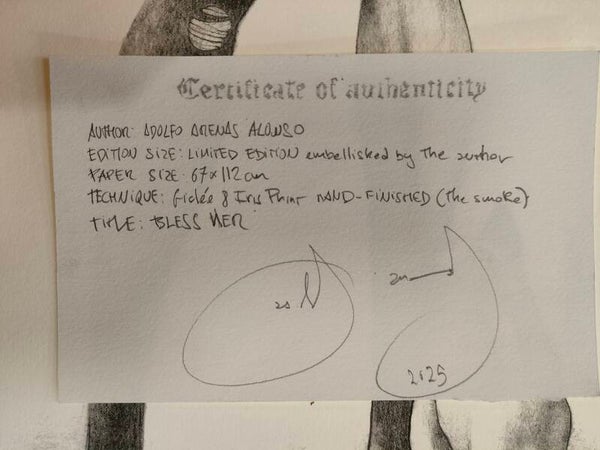 Certificate of authenticity
AUTHOR: ADOLFO ARENAS ALONSO
EDITION SIZE: LIMITED EDITION embellished by The author
PAPER SIZE: 67x112cm
TECHNIQUE: Giclée & Iris Print HAND-FINISHED (The smoke)
TITLE: BLESS HER
2025